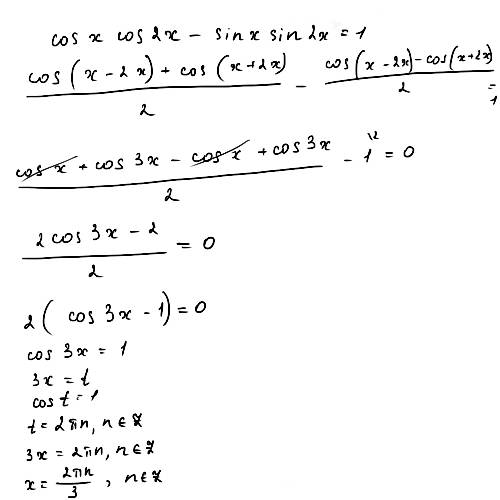 cos x cos 2x - sin x sin 2x = 1
(cos(x - 2x) + cos(x + 2x))/2 - (cos(x - 2x) - cos(x + 2x))/2 = 1
(cos x + cos 3x - cos x + cos 3x)/2 - 1^{\2} = 0
(2 cos 3x - 2)/2 = 0
2( cos 3x - 1) = 0
cos 3x = 1
3x = t
cos t = 1
t = 2πn, n ∈ Z
3x = 2πn, n ∈ Z
x = 2πn/3, n ∈ Z